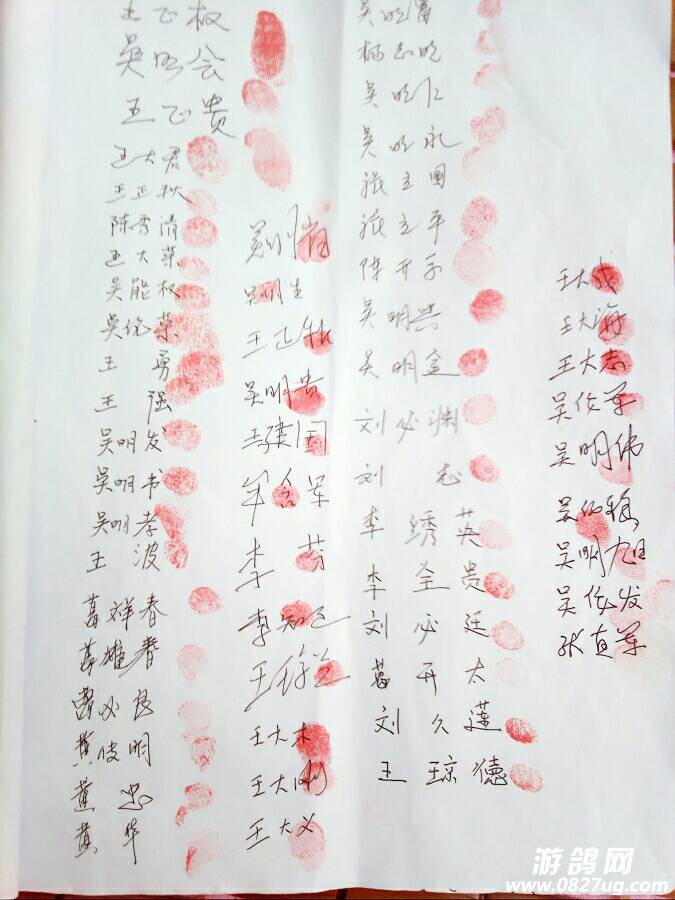 王正权
吴明会
王正贵
王大君
王正秋
陈秀清
王大荣
吴能权
吴伦荣
王勇
王强
吴明发
吴明书
吴明孝
王波
葛祥春
葛雄春
曹必良
黄俊明
黄忠
黄华
吴明生
吴明贵
王建国
牟含军
李芬
李知己
王大木
王大刚
王大义
吴明富
杨志明
吴明仁
吴明永
张立国
张立平
陈开承
吴明兴
吴明宣
刘必渊
刘志
李绣英
李全贵
刘必廷
葛开太
刘久莲
王琼德
王大成
王大海
王大志
吴伦军
吴明伟
吴明旭
吴伦发
张直军
游鸽网
www.0827ug.com